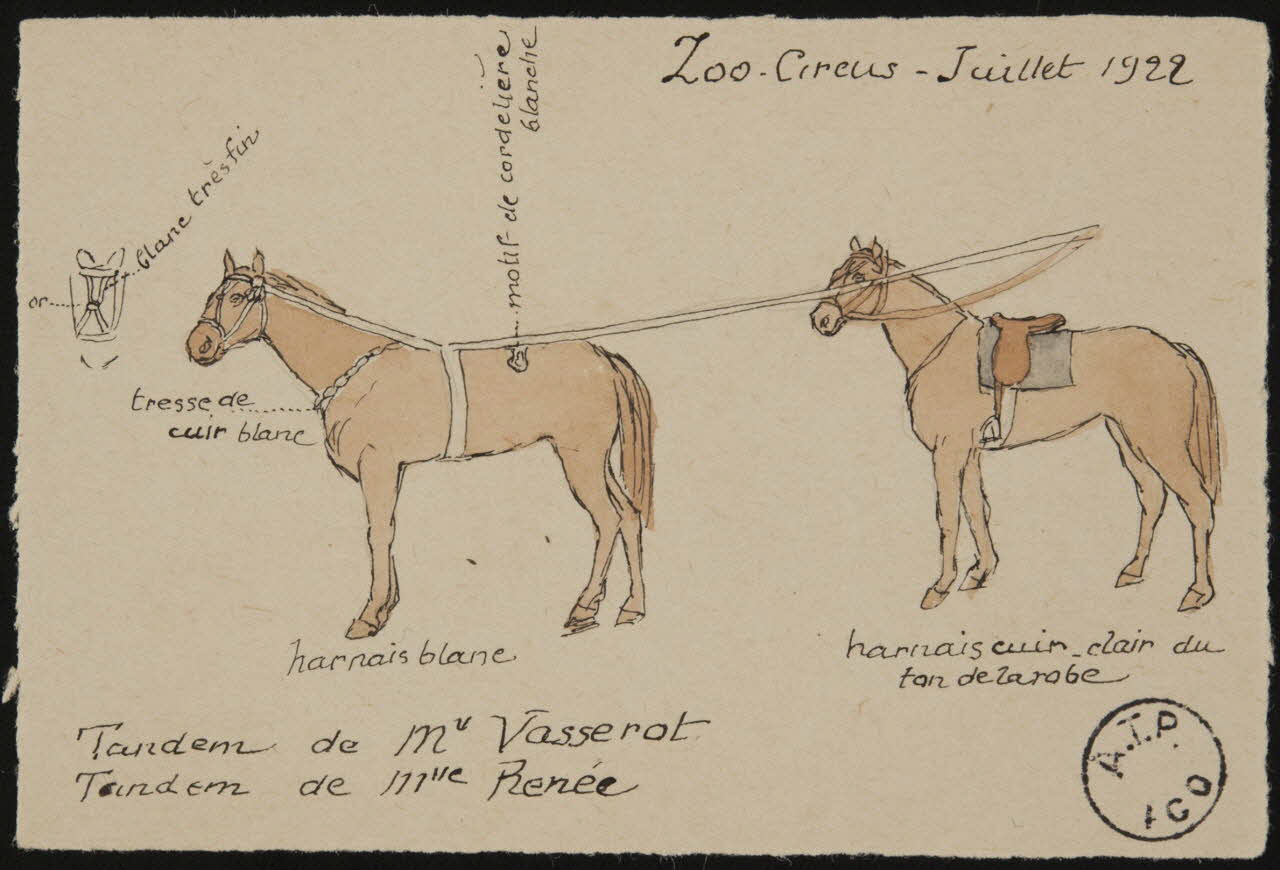 Zoo-Circus - Juillet 1922
motif de cordelière
blanche
blanc très fin
or
tresse de
cuir blanc
harnais blanc
harnais cuir-clair du
ton de la robe
Tandem de Mr Vasserot
Tandem de Mlle Renée
A.T.P.
ICO